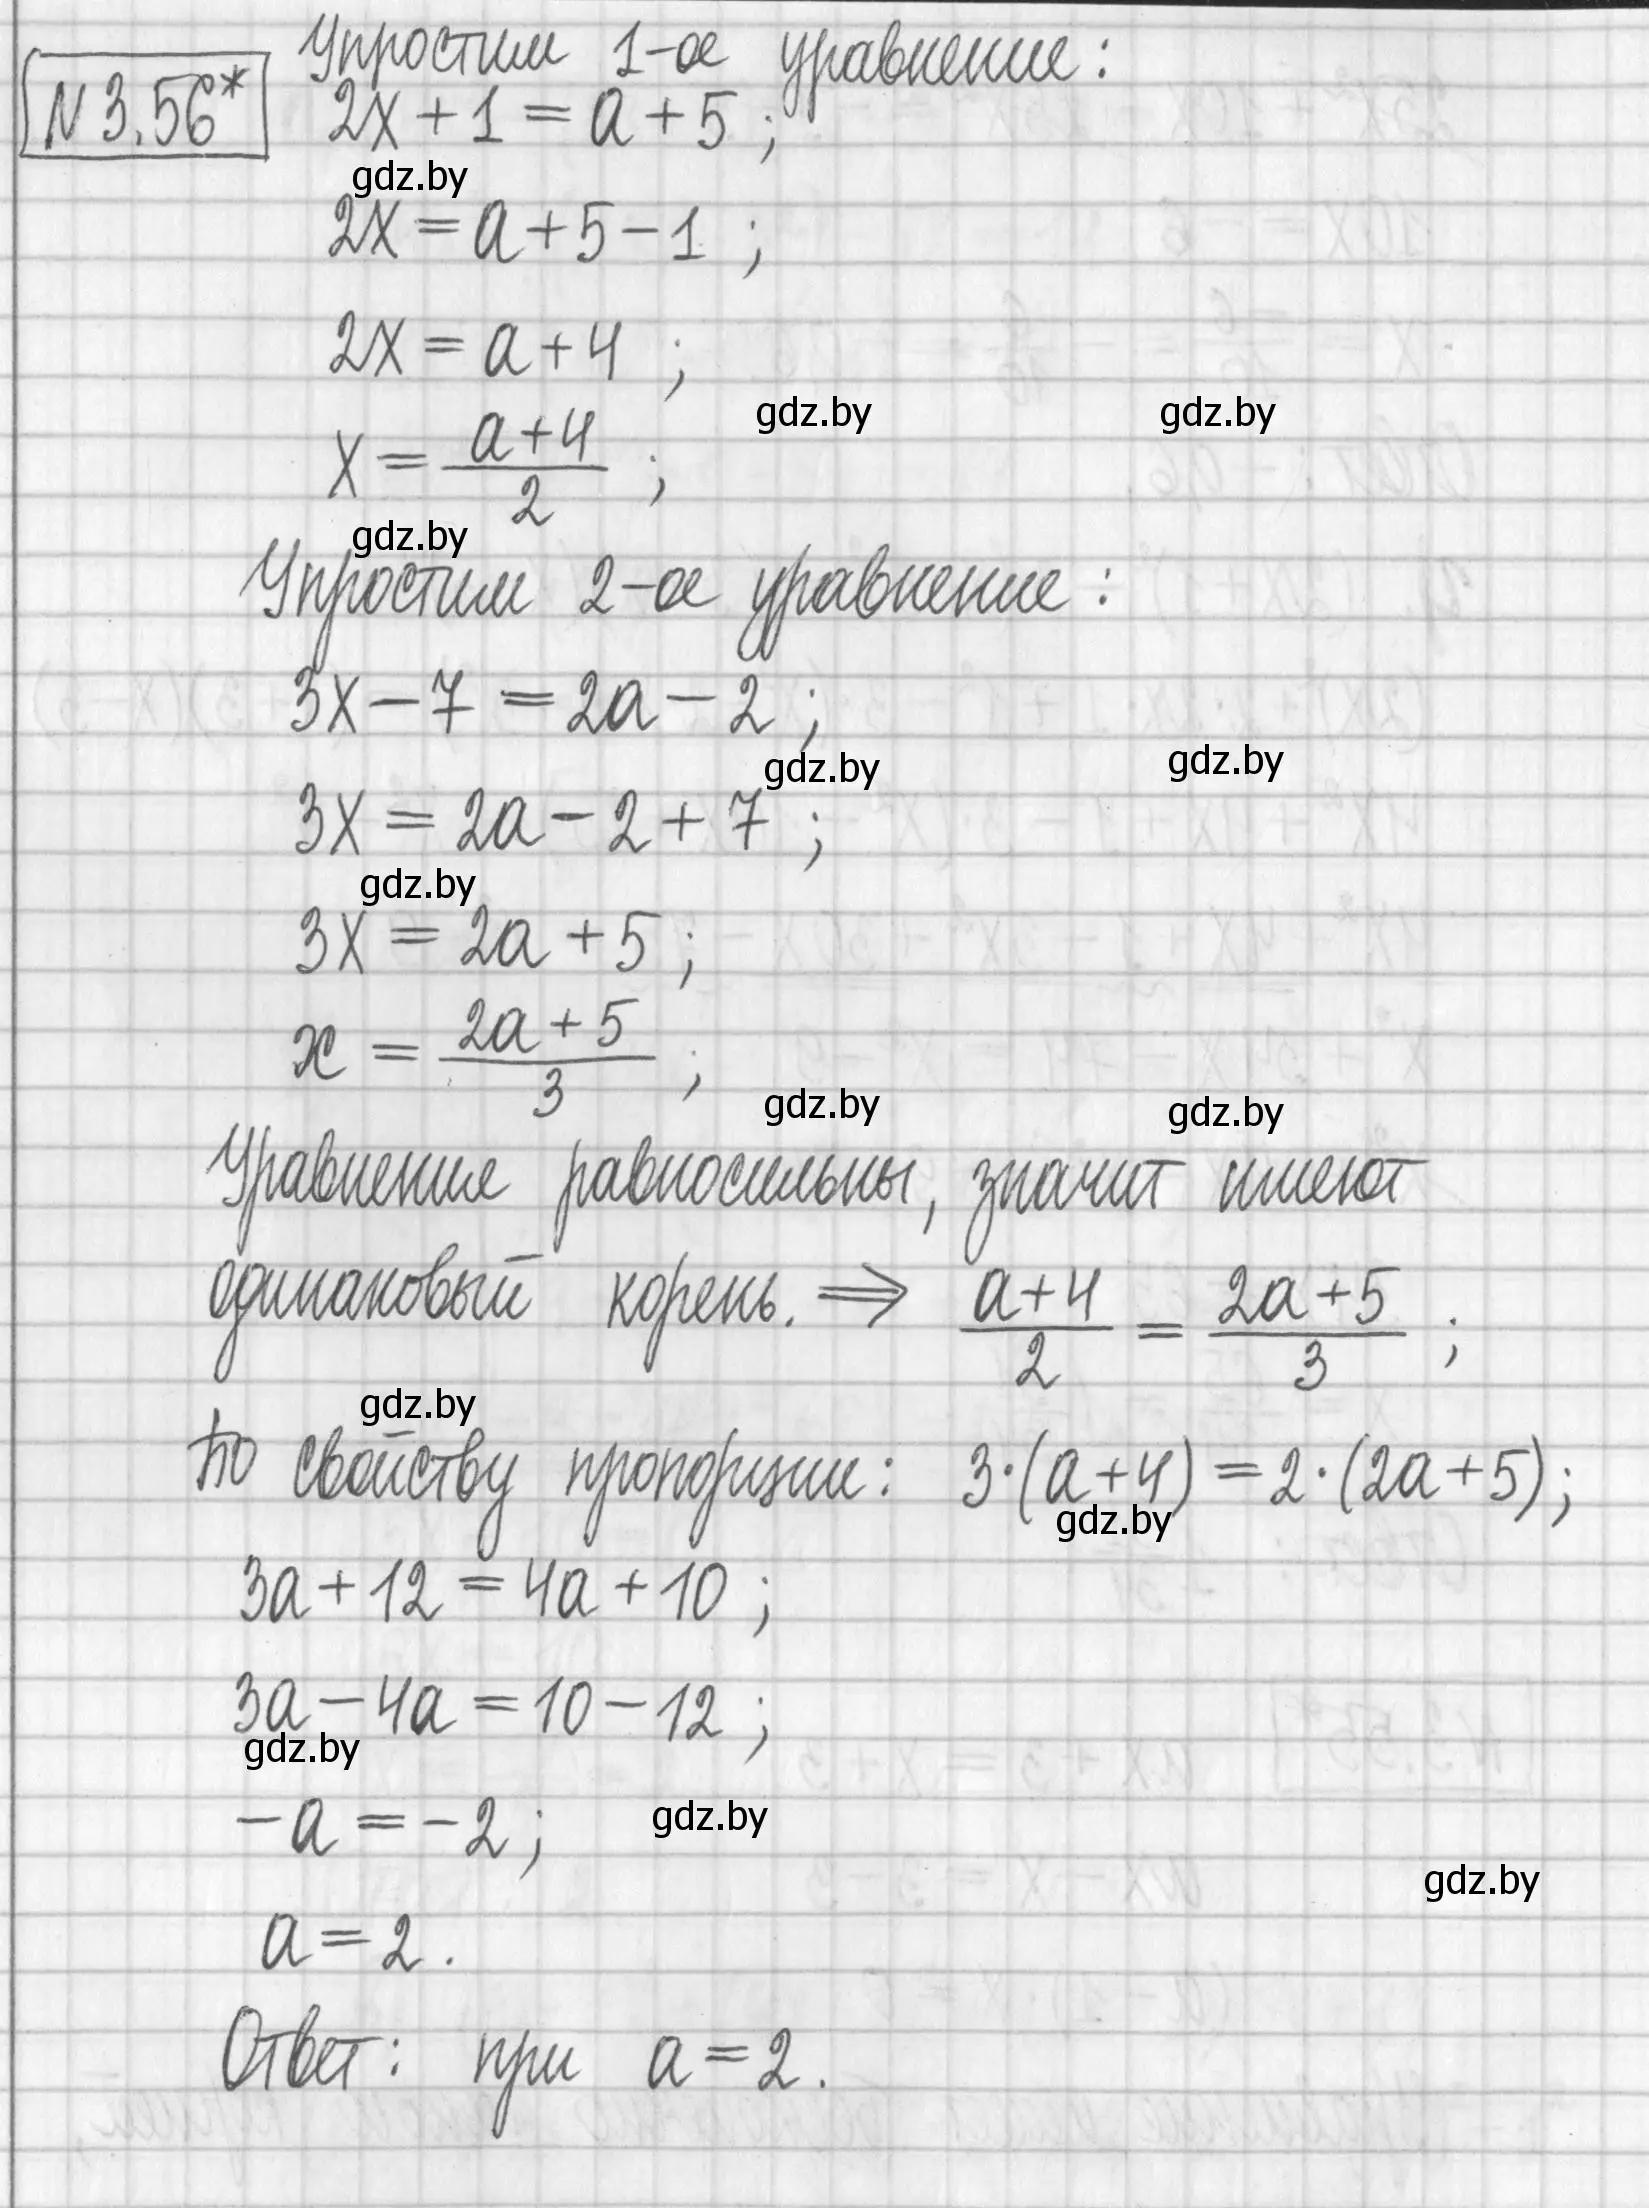 Упростим 1-ое уравнение:
N 3.56*
2x + 1 = a + 5 ;
gdz.by
2x = a + 5 - 1 ;
2x = a + 4 ;
gdz.by gdz.by
x = (a + 4)/2 ;
gdz.by
Упростим 2-ое уравнение:
3x - 7 = 2a - 2 ;
gdz.by gdz.by
3x = 2a - 2 + 7 ;
gdz.by
3x = 2a + 5 ;
x = (2a + 5)/3 ;
gdz.by gdz.by
Уравнения равносильны, значит имеют
одинаковый корень. ⇒ (a + 4)/2 = (2a + 5)/3 ;
gdz.by
По свойству пропорции: 3·(a + 4) = 2·(2a + 5);
gdz.by
3a + 12 = 4a + 10 ;
3a - 4a = 10 - 12 ;
gdz.by
-a = -2 ;
gdz.by
gdz.by
a = 2 .
Ответ: при a = 2 .